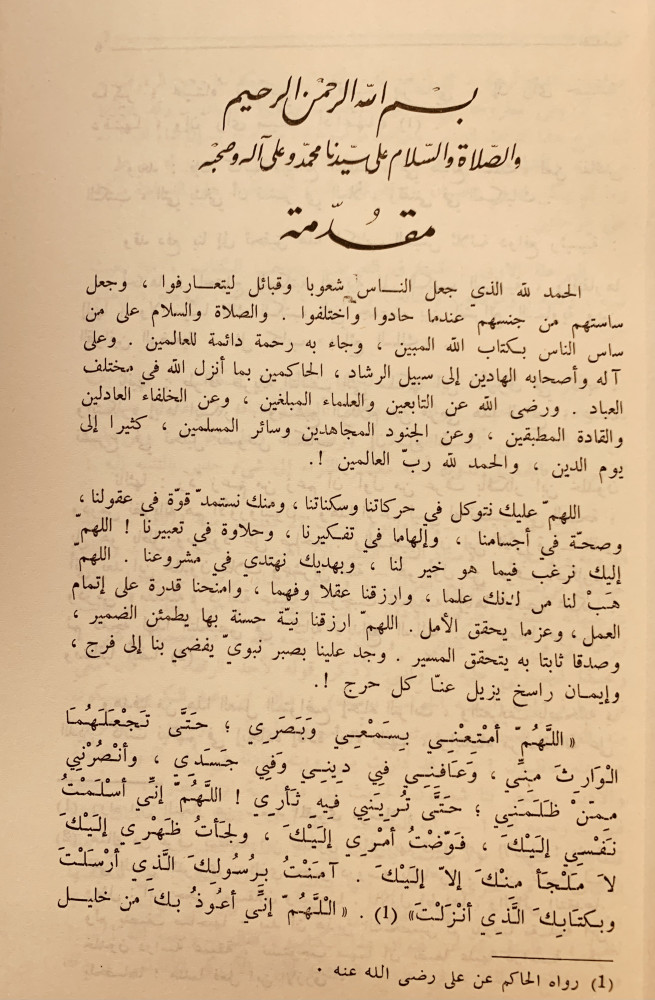 بسم الله الرحمن الرحيم
والصّلاة والسّلام على سيّدنا محمّد وعلى آله وصحبه
مقدّمة
الحمد لله الذي جعل النـاس شعوبا وقبائل ليتعـارفوا ، وجعل
ساستهم من جنسهم عندما حادوا واختلفوا . والصلاة والسلام على من
ساس الناس بـكتاب الله المبين ، وجاء به رحمة دائمة للعالمين . وعلى
آله وأصحابه الهادين إلى سبيل الرشاد ، الحاكمين بما أنزل الله في مختلف
العباد . ورضى الله عن التابعين والعلماء المبلغين ، وعن الخلفاء العادلين
والقادة المطبقين ، وعن الجنود المجاهدين وسائر المسلمين ، كثيرا إلى
يوم الدين ، والحمد لله ربّ العالمين !.
اللهمّ عليك نتوكل في حركاتنا وسكناتنا ، ومنك نستمدّ قوّة في عقولنا ،
وصحّة في أجسامنا ، وإلهاما في تفـكيرنا ، وحلاوة في تعبيرنا ! اللهمّ
إليك نرغب فيما هو خير لنا ، وبهديك نهتدي في مشروعنا . اللهمّ
هَبْ لنا من لدنك علما ، وارزقنا عقلا وفهما ، وامنحنا قدرة على إتمام
العمل ، وعزما يحقق الأمل . اللهمّ ارزقنا نيّـة حسنة بها يطمئن الضمير ،
وصدقا ثابتا به يتحقق المسير . وجد علينا بصبر نبويّ يفضي بنا إلى فرج ،
وإيمـان راسخ يزيل عنّـا كل حرج !.
« اللَّهُمّ أمْتِعْنِـي بِسَمْعِـي وَبَصَرِي ؛ حَتَّى تَجْعَلَهُمَا
الْوَارِثَ مِنِّي ، وَعَافِنِـي فِي دِينِـي وَفِي جَسَدِي ، وأنْصُرْنِي
مِمَّنْ ظَلَمَنِي ؛ حَتَّى تُرِيَنِي فِيهِ ثَأرِي ! اللَّهُمّ إنِّي أسْلَمْتُ
نَفْسِي إلَيْكَ ، فَوَّضْتُ أمْرِي إلَيْكَ ، ولَجَأتُ ظَهْرِي إلَيْكَ
لاَ مَلْجَأ مِنْكَ إلاّ إلَيْكَ . آمَنْتُ بِرَسُولِكَ الَّذِي أرْسَلْتَ
وبكتَابِكَ الَّذِي أنْزَلْتَ» (1) . «اللَّهُمّ إنِّي أعُوذُ بكَ من خليـل
(1) رواه الحاكم عن على رضى الله عنه .